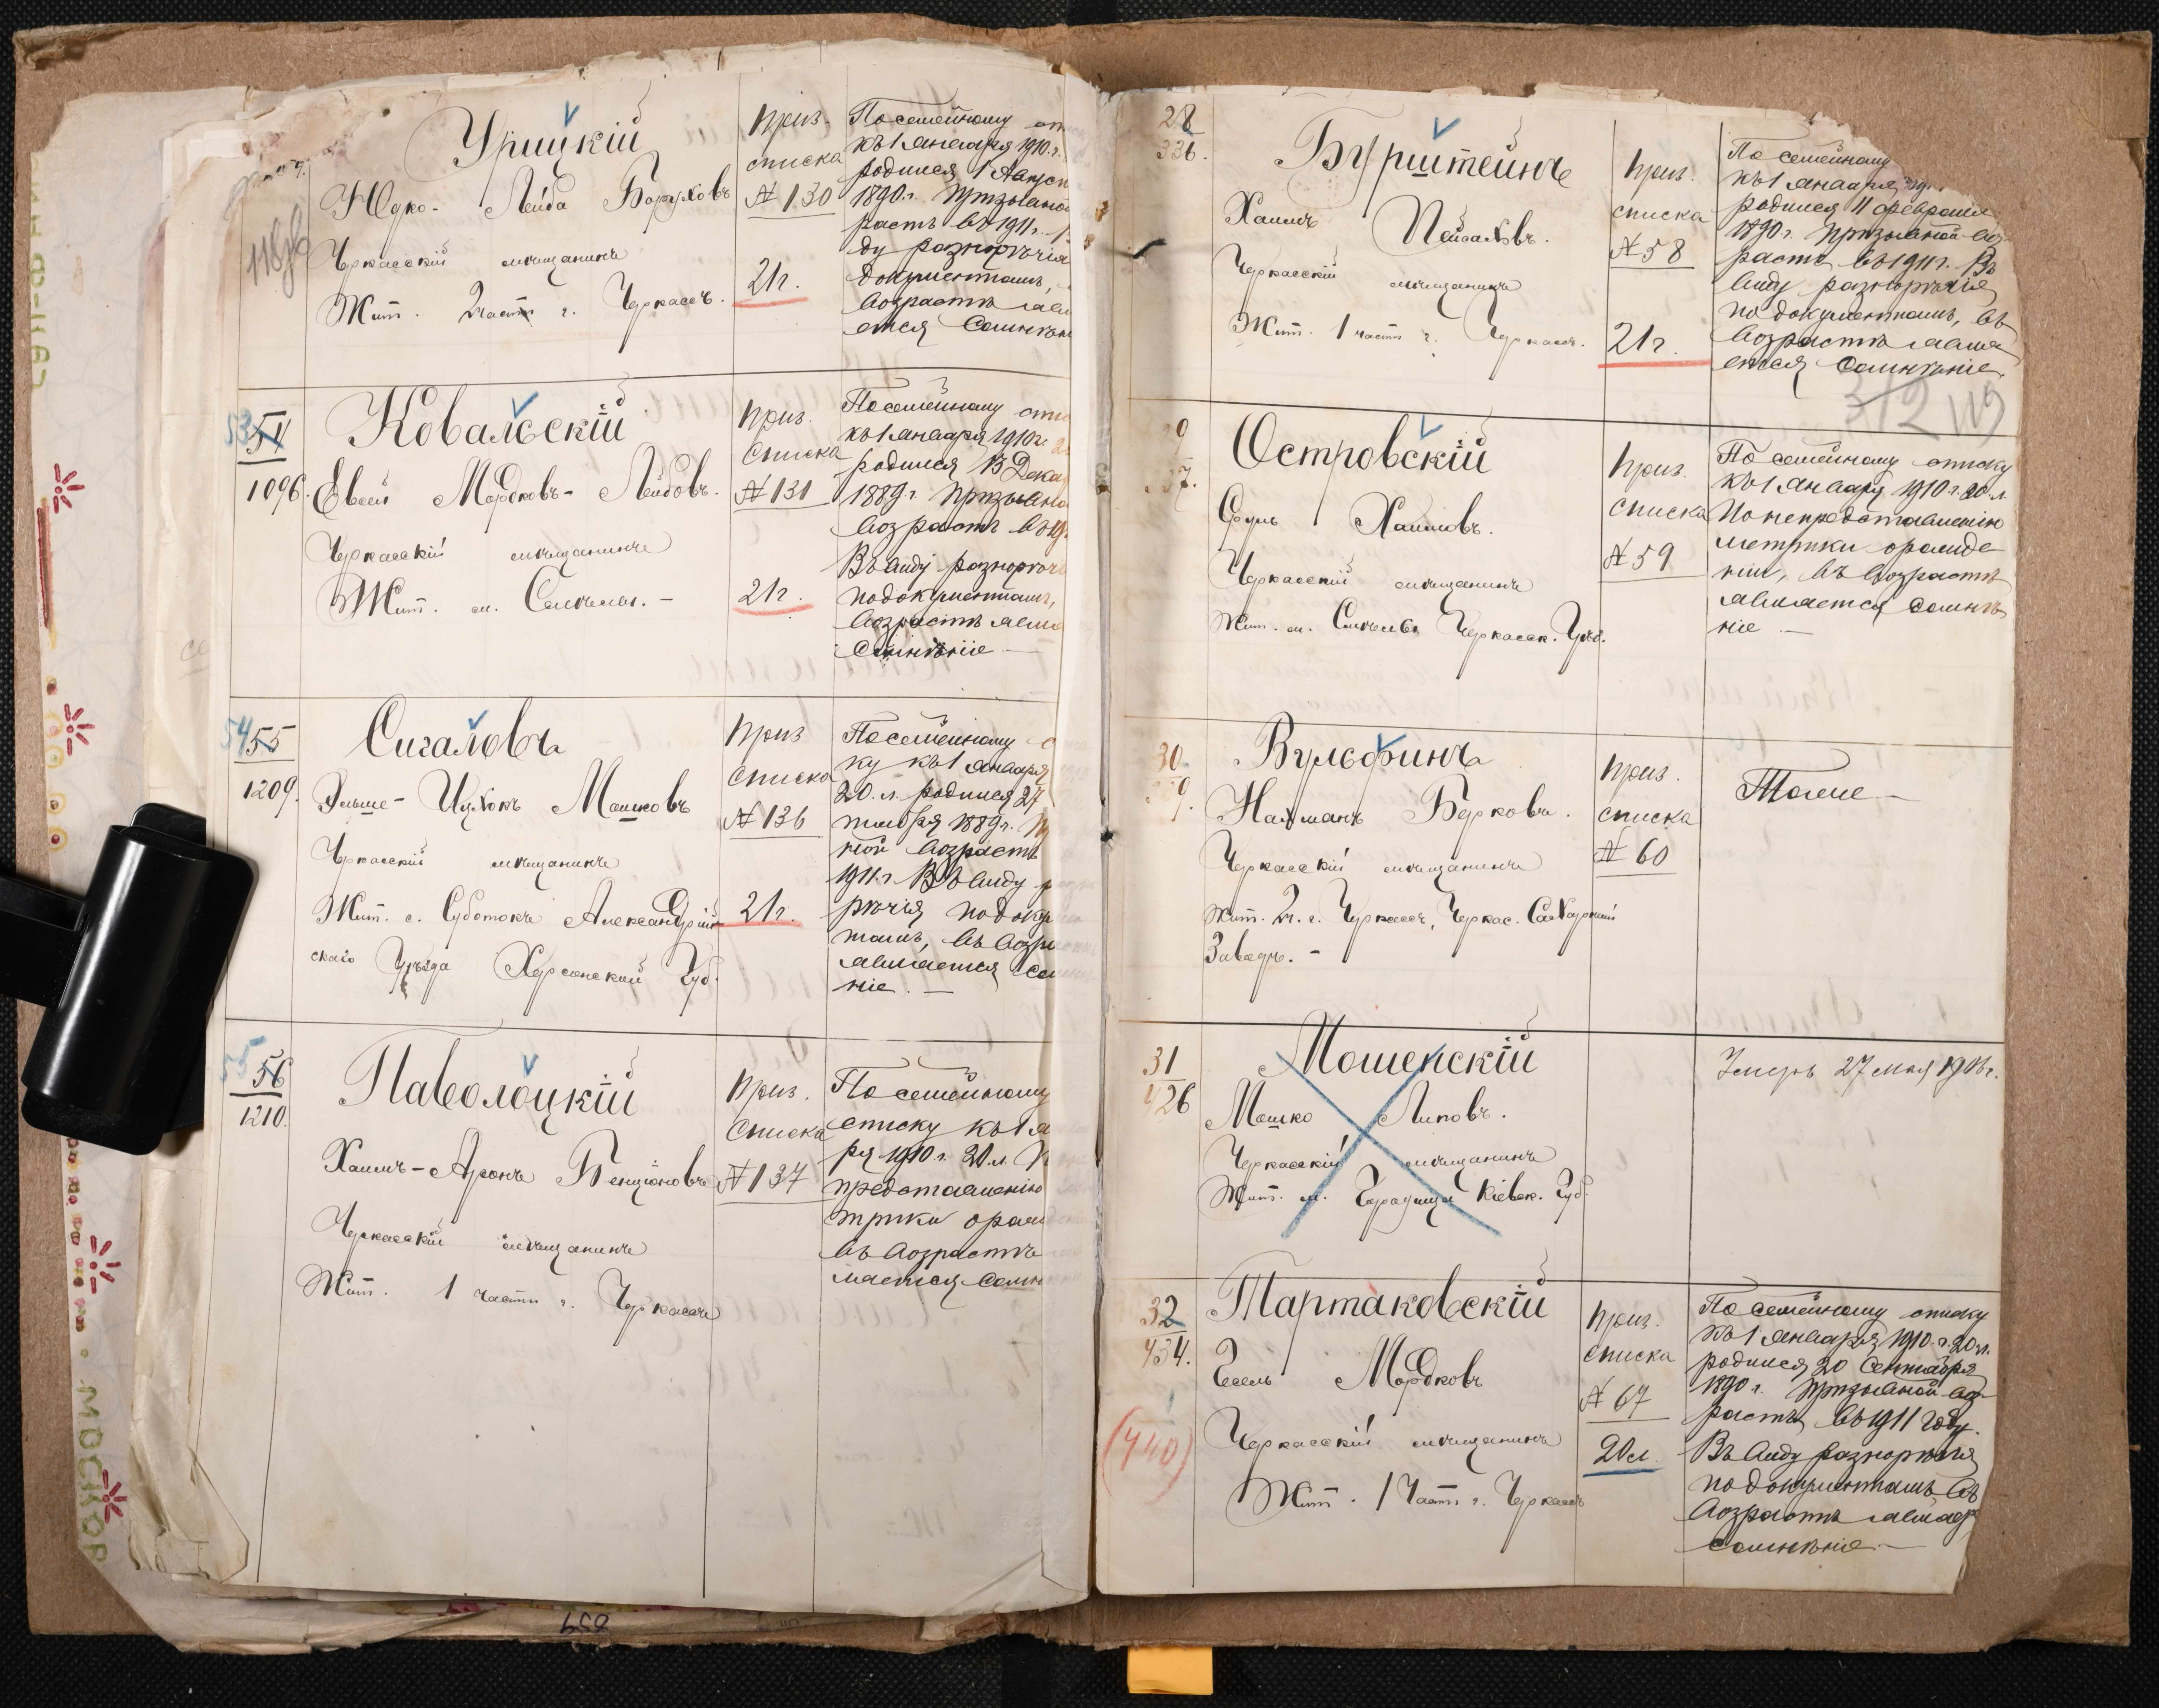 118об
Урицкій
Юдко-Лейба Боруховъ
Черкасскій мѣщанинъ
Жит. 2 части г. Черкассъ.
Приз.
списка
№ 130
21 г.
По семейному
къ 1 Января 1910 г.
родился 1 Август
1890 г. Призывной
растъ въ 1911 г.
ду разнорѣчія
документамъ,
возрастѣ явл
ется Сомнѣн
53 54
1096.
Ковальскій
Евсей Мордковъ-Лейбовъ.
Черкасскій мѣщанинъ
Жит. м. Смѣлы. -
Приз.
Списка
№ 131
21 г.
По семейному спи
къ 1 Января 1910 г.
родился 13 Дека
1889 г. Призывно
возрастъ въ 19
Въ виду разнорѣч
по документамъ,
возрастѣ явля
Сомнѣніе —
54 55
1209.
Сигаловъ
Эльше-Ицхокъ Машковъ
Черкасскій мѣщанинъ
Жит. с. Суботокъ Александрій-
скаго Уѣзда Херсонской Губ.
Приз
Списка
№ 136
21 г.
По семейному с
ку къ 1 Января
20 л. родился 27
тября 1889 г.
ной возрастъ
1911 г. Въ виду р
рѣчія по доку
тамъ, въ возра
является Со
ніе. —
55 56
1210.
Паволоцкій
Хаимъ-Аронъ Бенціоновъ
Черкасскій мѣщанинъ
Жит. 1 части г. Черкассъ
Приз.
Списка
№ 137
По семейному
списку къ 1 Я
ря 1910 г. 20 л.
представленію
трики о рожд
въ возрастѣ
ляется Сомн
28
336.
Бурштейнъ
Хаимъ Пейсаховъ.
Черкасскій мѣщанинъ
Жит. 1 части г. Черкассъ.
Приз.
списка
№ 58
21 г.
По семейному
къ 1 Января
родился 11 февраля
1890 г. Призывной воз
растъ въ 1911 г. Въ
виду разнорѣчія
по документамъ, въ
возрастѣ явля
ется Сомнѣніе.
312 119
29
337.
Островскій
Сруль Хаимовъ.
Черкасскій мѣщанинъ
Жит. м. Смѣлы Черкасск. Уѣз.
Приз.
Списка
№ 59
По семейному списку
къ 1 Январу 1910 г. 20 л.
По непредставленію
метрики о рожде
ніи, въ возрастѣ
является Сомнѣ
ніе —
30
9.
Вульфинъ
Нахманъ Берковъ.
Черкасскій мѣщанинъ
Жит. 2 ч. г. Черкассъ, Черкас. Сахарный
Заводъ. -
Приз.
списка
№ 60
Тоже —
31
426
Мошенскій
Мошко Липовъ.
Черкасскій мѣщанинъ
Жит. м. Городища Кіевск. Губ.
Умеръ 27 мая 1908 г.
32
434.
(440)
Тартаковскій
Гесель Мордковъ
Черкасскій мѣщанинъ
Жит. 1 Части г. Черкассъ
Приз.
Списка
№ 67
20 л.
По семейному списку
къ 1 Января 1910 г. 20 л.
родился 20 Сентября
1890 г. Призывной воз-
растъ въ 1911 году.
Въ виду разнорѣчія
по документамъ въ
возрастѣ являе
сомнѣніе. —
МОСКОР